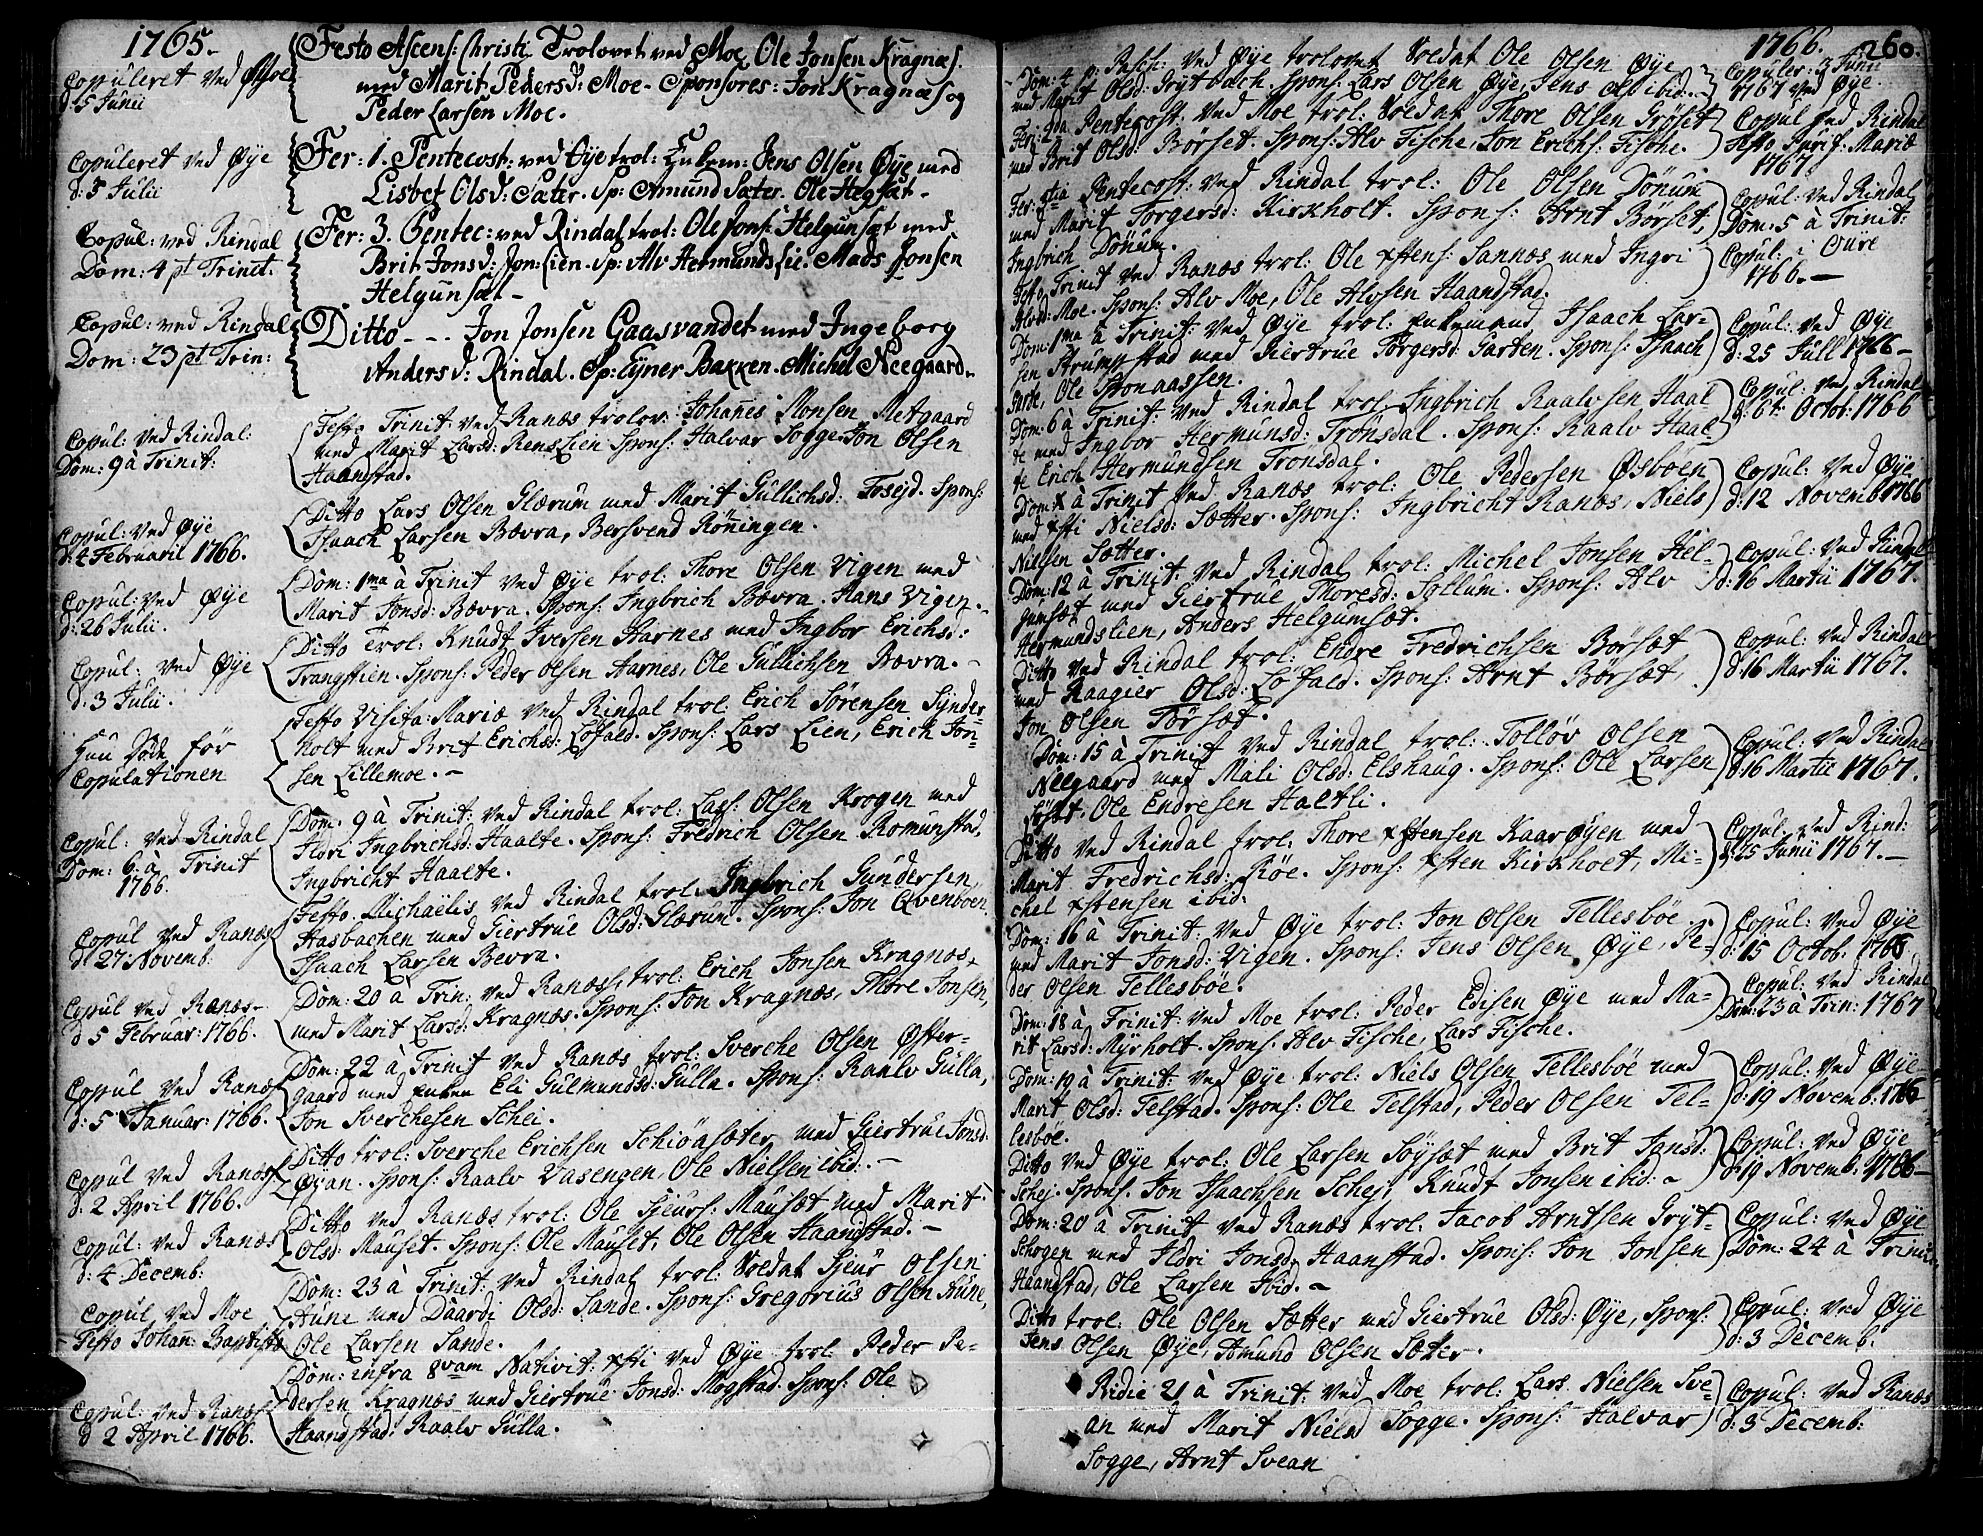 1765.
Copuleret ved Moe
d. 5 Junii
Festo Ascens: Christi Trolovet ved Moe Ole Jonsen Kragnæs.
med Marit Pedersd: Moe. Sponsores: Jon Kragnæs og
Peder Larsen Moe.
Copuleret ved Øye
d: 5 Julii
Fer: 1. Pentecost: ved Øye trol: Enkem: Jens Olsen Øye med
Lisbet Olsd: Sæter. Sp: Amund Sæter. Ole Hegsæt.
Copul: ved Rindal
Dom: 4 pt Trinit:
Fer: 3. Pentec: ved Rindal trol: Ole Jons: Helgunset med
Brit Jonsd: Jon: Lien. Sp: Alv Hermundslie. Mads Jonsen
Helgunsæt
Copul: ved Rindal
Dom: 23 pt Trin:
Ditto --- Jon Jonsen Gaasvandet med Ingeborg
Andersd: Rindal. Sp: Eyner Bakken. Michel Neegaard.
Copul: ved Rindal:
Dom: 9 à Trinit:
Festo Trinit: ved Ranæs trolov: Johanes Monsen Metgaard
med Marit Larsd: Rens Lien Spons: Halvar Sogge Jon Olsen
Haanstad.
Copul: ved Øye
d. 4 Februarii 1766.
Ditto Lars Olsen Glærum med Marit Gullichsd: Foseyd. Spons:
Isaach Larsen Bævra, Bersvend Röningen.
Copul: ved Øye
d: 26 Julii.
Dom: 1ma à Trinit ved Øye trol: Thore Olsen Vigen med
Marit Jonsd: Bævra. Spons: Ingbrich Bævra. Hans Vigen.
Copul: ved Øye
d. 3 Julii.
Ditto trol: Knudt Iversen Aarnes med Ingbor Erichsd:
Trangstien. Spons: Peder Olsen Aarnes, Ole Gullichsen Bævra.
Hun döde för
Copulationen
Festo Visita: Mariæ ved Rindal trol: Erich Sörensen Synder-
holt med Brit Erichsd: Löfald. Spons: Lars Lien, Erich Jon-
sen Lillemoe.
Copul: ved Rindal
Dom: 6. à Trinit
1766.
Dom. 9 à Trinit: ved Rindal trol: Lars: Olsen Krogen med
Ildri Ingbrichsd: Haalte. Spons: Fredrich Olsen Romunstad,
Ingbricht Haalte.
Copul ved Ranæs
d. 27: Novemb:
Festo Michaëlis ved Rindal trol. Ingbrich Gundersen
Hasbachen med Giertrue Olsd: Glærum. Spons: Jon Qvenböen,
Isaach Larsen Bevra.
Copul ved Ranæs
d 5 Februar: 1766.
Dom: 20 à Trin: ved Ranæs, trol: Erich Jonsen Kragnæs,
med Marit Larsd: Kragnæs. Spons: Jon Kragnæs, Thore Jonsen,
Copul ved Ranæs
d: 5 Januar: 1766.
Dom: 22 à Trinit ved Ranæs trol: Sverche Olsen Öster-
gaard med Enken Eli Gulmundsd: Gulla. Spons: Raalv Gulla,
Jon Sverchesen Schei.
Copul ved Ranæs
d. 2 April 1766.
Ditto trol: Sverche Erichsen Schiönsæter, med Giertrue Jonsd:
Øyan. Spons: Raalv Vasengen, Ole Nielsen ibid:
Copul: ved Ranæs
d: 4 Decemb:
Ditto ved Ranæs trol: Ole Sjeurs: Mausæt med Marit
Olsd: Mauset. Spons: Ole Mauset, Ole Olsen Haanstad.
Copul ved Moe
Festo Johan: Baptistæ
Dom: 23 à Trinit: ved Rindal trol: Soldat Sjeur Olsen
Aune med Daardi Olsd: Sande. Spons: Gregorius Olsen Aune,
Ole Larsen Sande.
Copul: ved Ranæs
d 2 April 1766.
Dom: infra 8vam Nativit: Xsti ved Øye trol: Peder Pe-
dersen Kragnæs med Giertrue Jonsd: Mogstad. Spons: Ole
Haandstad, Raalv Gulla.
1766. 260.
Dom: 4 p: Pasch: ved Øye trolovet Soldat Ole Olsen Øye
med Marit Olsd: Grytbach. Spons: Lars Olsen Øye, Jens Ols: ibid:
Copuler: 3 Junii
1767 ved Øye.
Fer: 2da Pentecost: ved Moe trol: Soldat Thore Olsen Gröset
med Brit Olsd: Börset. Spons: Alv Fische, Jon Erichs: Fische.
Copul ved Rindal
Festo Purif: Mariæ
1767.
Fer: 3tia Pentecost: ved Rindal trol: Ole Olsen Dönum
med Marit Torgersd: Kirkholt. Spons: Arnt Börset,
Ingbrich Dönum.
Copul: ved Rindal
Dom. 5 à Trinit:
Festo Trinit ved Ranæs trol: Ole Xstens: Sannæs med Ingri
Alvsd: Moe. Spons: Alv Moe, Ole Alvsen Haandstad.
Copul: i Oure
1766.
Dom: 1ma à Trinit: ved Øye trol: Enkemand Isaach Lar-
sen Strumpstad med Giertrue Torgersd: Garten. Spons: Isaach
Garte, Ole Sponaassen.
Copul: ved Øye
d: 25 Julii 1766
Dom: 6 à Trinit: ved Rindal trol: Ingbrich Raalvsen Haal-
te med Ingbor Hermunsd: Tronsdal. Spons: Raalv Haal-
te Erich Hermundsen Tronsdal.
Copul: ved Rindal
d: 6t: Octob: 1766
Dom X à Trinit ved Ranæs trol: Ole Pedersen Øsböen
med Xsti Nielsd: Sætter. Spons: Ingbricht Ranæs, Niels
Nielsen Sætter.
Copul: ved Øye
d: 12 Novemb 1766
Dom: 12 à Trinit: ved Rindal trol: Michel Jonsen Hel-
gumsæt med Giertrue Thoresd: Sollum. Spons: Alv
Hermundslien, Anders Helgumsæt.
Copul: ved Rindal
d: 16 Martii 1767.
Ditto ved Rindal trol: Endre Fredrichsen Börsæt
med Raagier Olsd: Löfald. Spons: Arnt Börsæt,
Jon Olsen Törsæt.
Copul: ved Rindal
d: 16 Martii 1767.
Dom: 15 à Trinit ved Rindal trol: Tollöv Olsen
Neegaard med Mali Olsd: Elshaug. Spons: Ole Larsen
Ole Endresen Haltli.
Copul: ved Rindal
d: 16 Martii 1767.
Ditto ved Rindal trol: Thore Xstensen Kaarøyen med
Marit Fredrichsd: Röe. Spons: Xsten Kirkholt, Mi-
chel Xstensen ibid:
Copul: ved Rind:
d: 25 Junii 1767.
Dom: 16 à Trinit: ved Øye trol: Jon Olsen Tellesböe
med Marit Jonsd: Vigen. Spons: Jens Olsen Øye, Pe-
der Olsen Tellesböe.
Copul: ved Øye
d: 15 Octob: 1766
Dom: 18 à Trinit: ved Moe trol: Peder Edisen Øye med Ma-
rit Larsd: Myrholt. Spons: Alv Fische, Lars Fische.
Copul: ved Rindal
Dom: 23 à Trin: 1767
Dom: 19 à Trinit: ved Øye trol: Niels Olsen Tellesböe med
Marit Olsd: Telstad. Spons: Ole Telstad, Peder Olsen Tel-
lesböe.
Copul: ved Øye
d: 19 Novemb: 1766
Ditto ved Øye trol: Ole Larsen Söysæt med Brit Jonsd:
Schej. Spons. Jon Isaachsen Schej, Knudt Jonsen ibid:
Copul: ved Øye
d: 19 Novemb. 1766
Dom: 20 à Trinit ved Ranæs trol: Jacob Arntsen Gryt-
schogen med Ildri Jonsd: Haanstad. Spons: Jon Jonsen
Haandstad, Ole Larsen Ibid.
Copul: ved Øye
Dom: 24 à Trinit
Ditto trol: Ole Olsen Sætter med Giertrue Olsd: Øye, Spons:
Jens Olsen Øye, Amund Olsen Sæter.
Copul: ved Øye
d: 3 Decemb.
Ridie 21 à Trinit: ved Moe trol: Lars Nielsen Sve
an med Marit Nielsd Sogge. Spons: Halvar
Sogge, Arnt Svean
Copul: ved Ranæs
d: 3 Decemb: